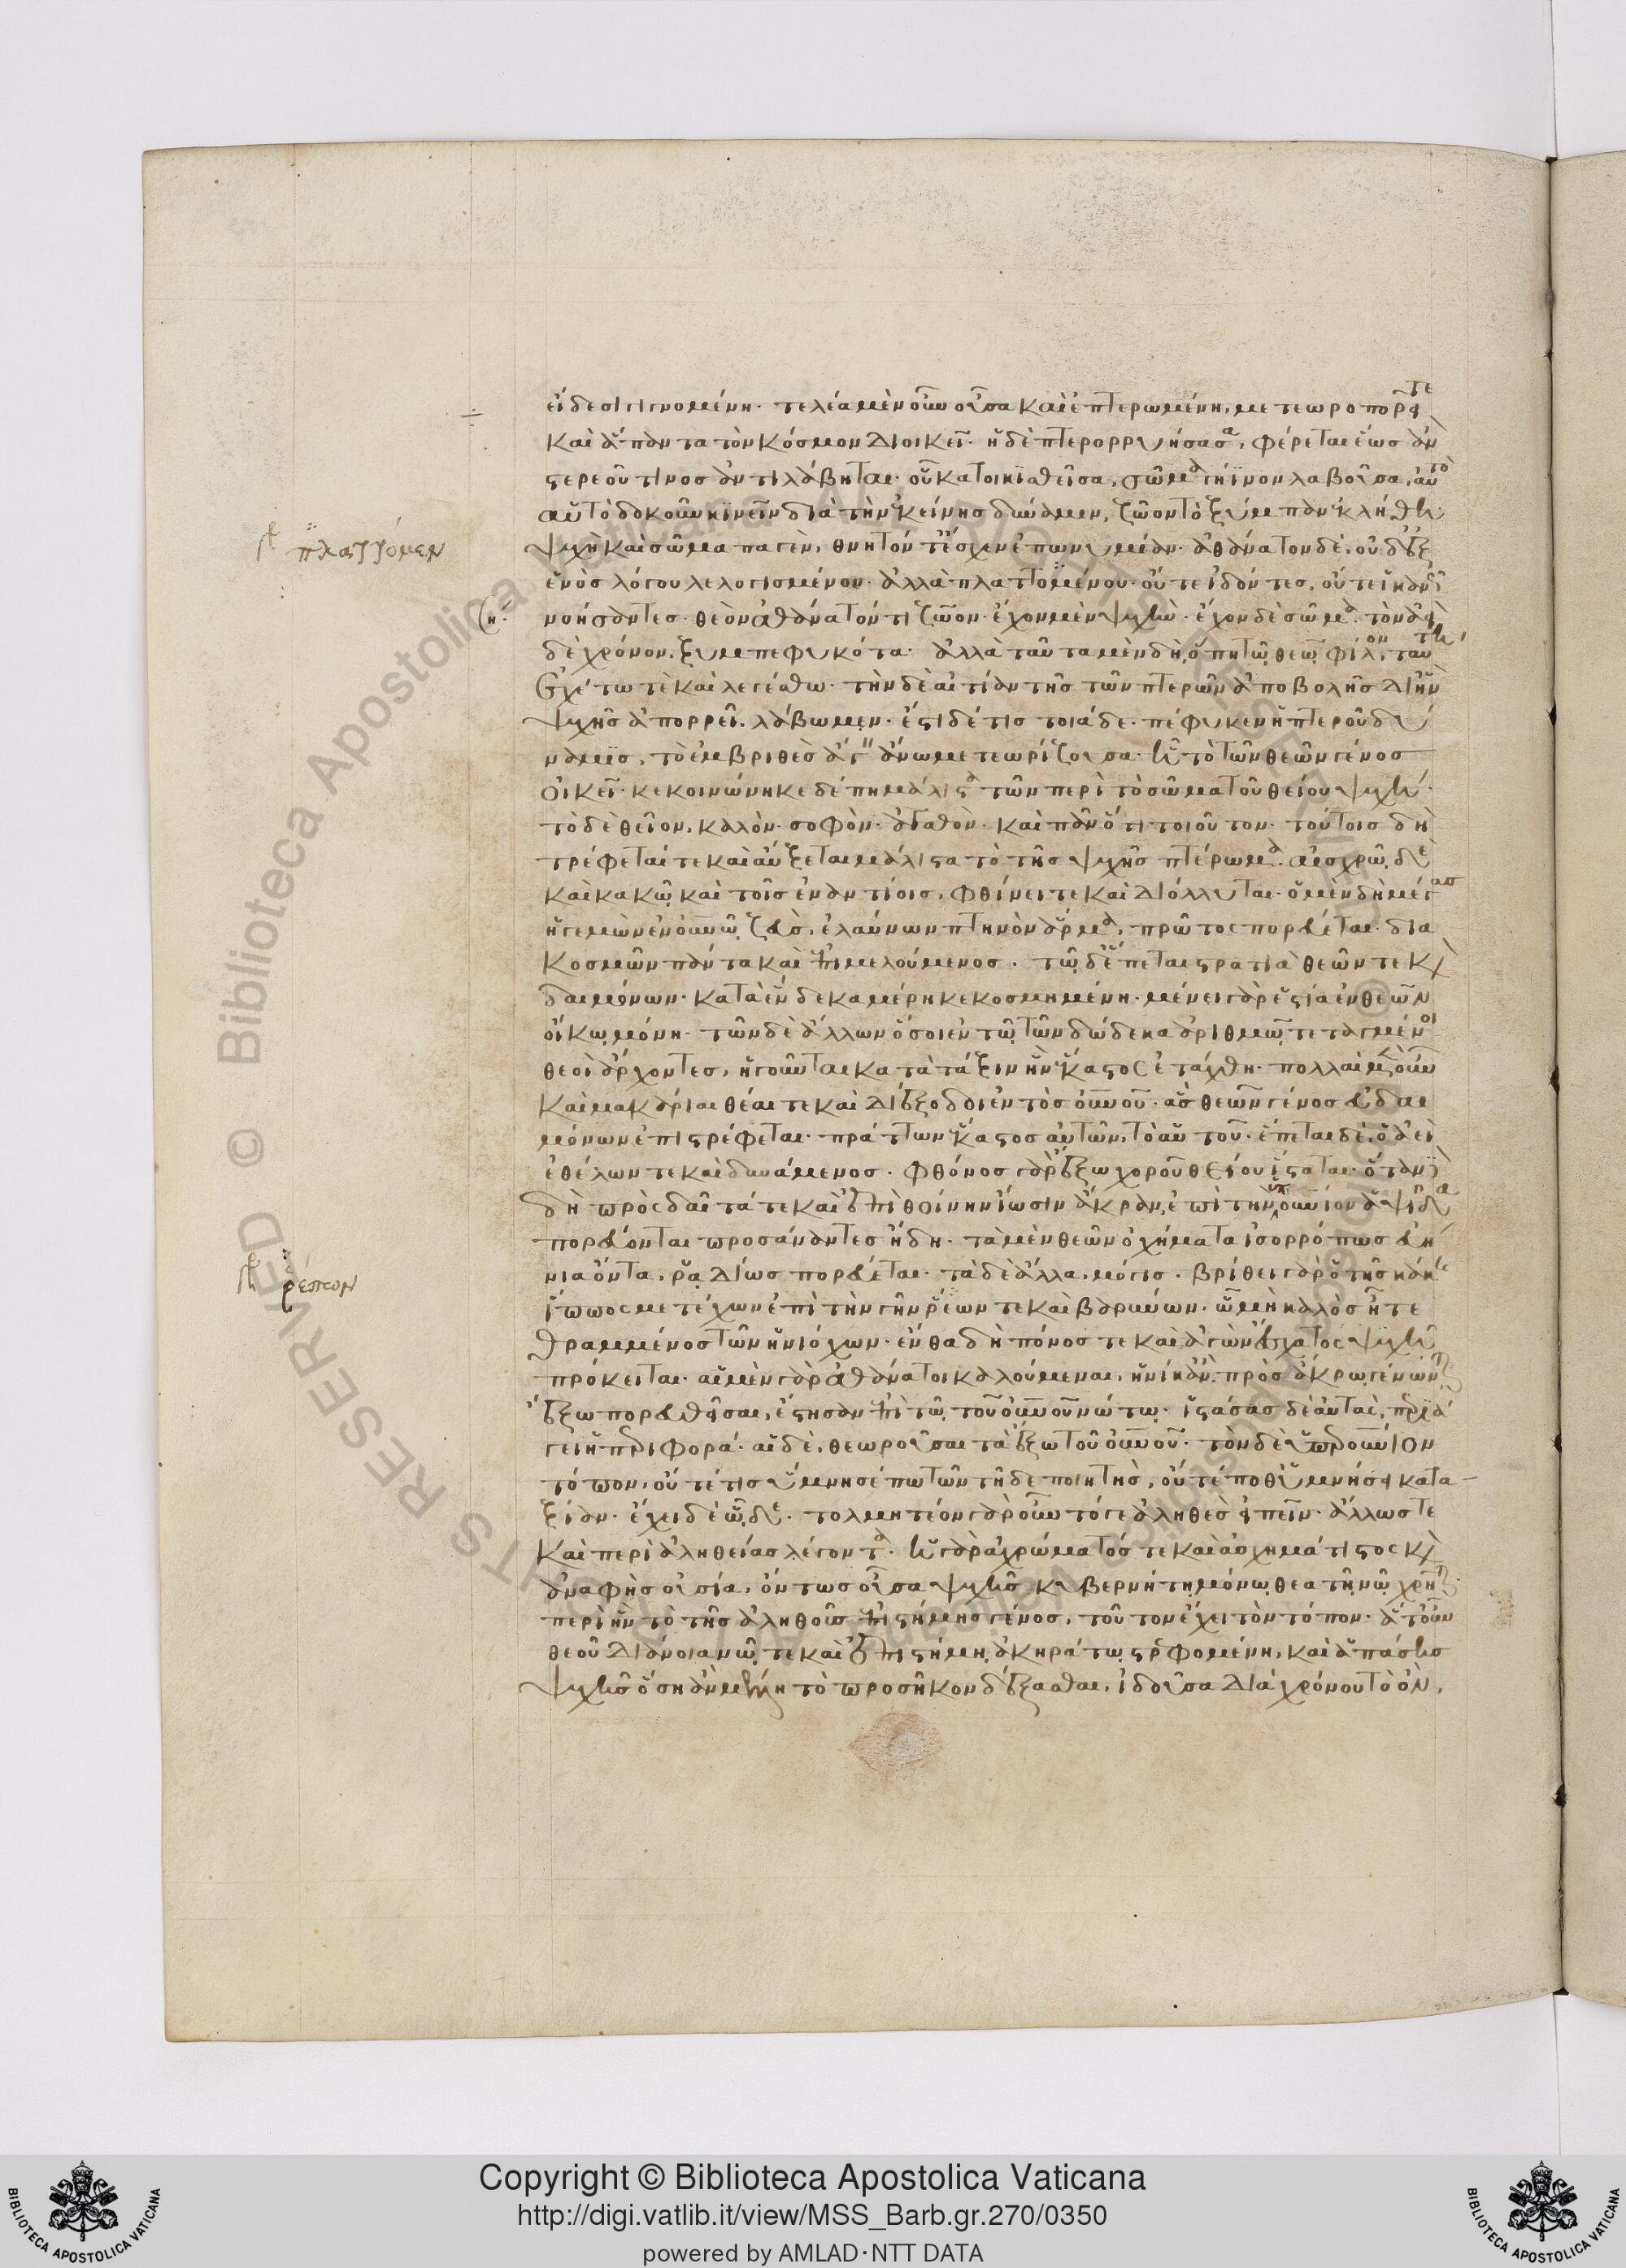 εἴδεσι γιγνομένη· τελέα μὲν οὖν οὖσα καὶ ἐπτερωμένη, μετεωροπορεῖ τε
καὶ ἅπαντα τὸν κόσμον διοικεῖ· ἡ δὲ πτερορρυήσασα, φέρεται ἕως ἂν
στερεοῦ τινος ἀντιλάβηται· οὗ κατοικισθεῖσα, σῶμα γήϊνον λαβοῦσα, αὐτὸ
αὑτὸ δοκοῦν κινεῖν διὰ τὴν ἐκείνης δύναμιν, ζῶον τὸ ξύμπαν ἐκλήθη·
ψυχὴ καὶ σῶμα παγὲν, θνητόν τ' ἔσχεν ἐπωνυμίαν· ἀθάνατον δὲ, οὐδ' ἐξ
ἑνὸς λόγου λελογισμένου· ἀλλὰ πλαττομένου· οὔτε ἰδόντες, οὔτε ἱκανῶς
νοήσαντες· θεὸν ἀθάνατόν τι ζῶον· ἔχον μὲν ψυχὴν· ἔχον δὲ σῶμα· τὸν ἀεὶ
δὲ χρόνον, ξυμπεφυκότα· ἀλλὰ ταῦτα μὲν δὴ, ὅπη τῷ θεῷ φίλον, ταύτη
ἐχέτω τὲ καὶ λεγέσθω· τὴν δὲ αἰτίαν τῆς τῶν πτερῶν ἀποβολῆς δι' ἣν
ψυχῆς ἀπορρεῖ, λάβωμεν· ἔστι δέ τις τοιάδε· πέφυκεν ἡ πτεροῦ δύ
ναμις, τὸ ἐμβριθὲς ἄγειν ἄνω μετεωρίζουσα· ᾗ τὸ τῶν θεῶν γένος
οἰκεῖ· κεκοινώνηκε δέ πη μάλιστα τῶν περὶ τὸ σῶμα τοῦ θείου ψυχή·
τὸ δὲ θεῖον, καλὸν· σοφὸν· ἀγαθὸν· καὶ πᾶν ὅτι τοιοῦτον· τούτοις δὴ
τρέφεταί τε καὶ αὔξεται μάλιστα τὸ τῆς ψυχῆς πτέρωμα· αἰσχρῷ δὲ
καὶ κακῷ καὶ τοῖς ἐναντίοις, φθίνει τε καὶ διόλλυται· ὁ μὲν δὴ μέγας
ἡγεμὼν ἐν οὐνῷ ζεὺς, ἐλαύνων πτηνὸν ἅρμα, πρῶτος πορεύεται· δια
κοσμῶν πάντα καὶ ἐπιμελούμενος· τῷ δ' ἕπεται στρατιὰ θεῶν τε καὶ
δαιμόνων· κατὰ ἕνδεκα μέρη κεκοσμημένη· μένει γὰρ ἑστία ἐν θεῶν
οἴκῳ μόνη· τῶν δὲ ἄλλων ὅσοι ἐν τῷ τῶν δώδεκα ἀριθμῷ τεταγμένοι
θεοὶ ἄρχοντες, ἡγοῦνται κατὰ τάξιν ἣν ἕκαστος ἐτάχθη· πολλαὶ μὲν οὖν
καὶ μακάριαι θέαι τε καὶ διέξοδοι ἐντὸς οὐνοῦ· ἃς θεῶν γένος εὐδαι
μόνων ἐπιστρέφεται· πράττων ἕκαστος αὐτῶν, τὸ αὑτοῦ· ἕπεται δὲ, ὁ ἀεὶ
ἐθέλων τε καὶ δυνάμενος· φθόνος γὰρ ἔξω χοροῦ θείου ἵσταται· ὅταν δὲ
δὴ πρὸς δαῖτά τε καὶ ἐπὶ θοίνην ἴωσιν ἄκραν, ἐπὶ τὴν ὑπουνιον ἁψῖδα
πορεύονται προσάναντες ἤδη· τὰ μὲν θεῶν ὀχήματα ἰσορρόπως εὐή
νια ὄντα, ῥᾳδίως πορεύεται· τὰ δὲ ἄλλα, μόγις· βρίθει γὰρ ὁ τῆς κάκης
ἵππος μετέχων ἐπὶ τὴν γῆν ῥέων τε καὶ βαρύνων· ᾧ μὴ καλὸς ἦ τε
θραμμένος τῶν ἡνιόχων· ἔνθα δὴ πόνος τε καὶ ἀγὼν ἔσχατος ψυχῇ
πρόκειται· αἱ μὲν γὰρ ἀθάνατοι καλούμεναι, ἡνίκ' ἂν πρὸς ἄκρῳ γένωνται
ἔξω πορευθεῖσαι, ἔστησαν ἐπὶ τῷ τοῦ οὐνοῦ νώτῳ· ἱστάσας δὲ αὐτὰς, περιά
γει ἡ περιφορά· αἱ δὲ, θεωροῦσαι τὰ ἔξω τοῦ οὐνοῦ· τὸν δὲ ὑπερουνιον
τόπον, οὔτέ τις ὕμνησέ πω τῶν τῇδε ποιητὴς, οὔτέ ποθ' ὑμνήσει κατα
ξίαν· ἔχει δὲ ὧδε· τολμητέον γὰρ οὖν τό γε ἀληθὲς εἰπεῖν· ἄλλως τε
καὶ περὶ ἀληθείας λέγοντα· ἡ γὰρ ἀχρώματός τε καὶ ἀσχημάτιστος καὶ
ἀναφὴς οὐσία, ὄντως οὖσα ψυχῆς κυβερνήτῃ μόνῳ θεατῇ νῷ χρῆται·
περὶ ἣν τὸ τῆς ἀληθοῦς ἐπιστήμης γένος, τοῦτον ἔχει τὸν τόπον· ἅτ' οὖν
θεοῦ διάνοια νῷ τε καὶ ἐπιστήμῃ ἀκηράτῳ στρεφομένη, καὶ ἁπάσης
ψυχῆς ὅση ἂν μέλῃ τὸ προσῆκον δέξασθαι, ἰδοῦσα διὰ χρόνου τὸ ὂν,
πλάττομεν
ρέπων
Copyright © Biblioteca Apostolica Vaticana
http://digi.vatlib.it/view/MSS_Barb.gr.270/0350
powered by AMLAD·NTT DATA